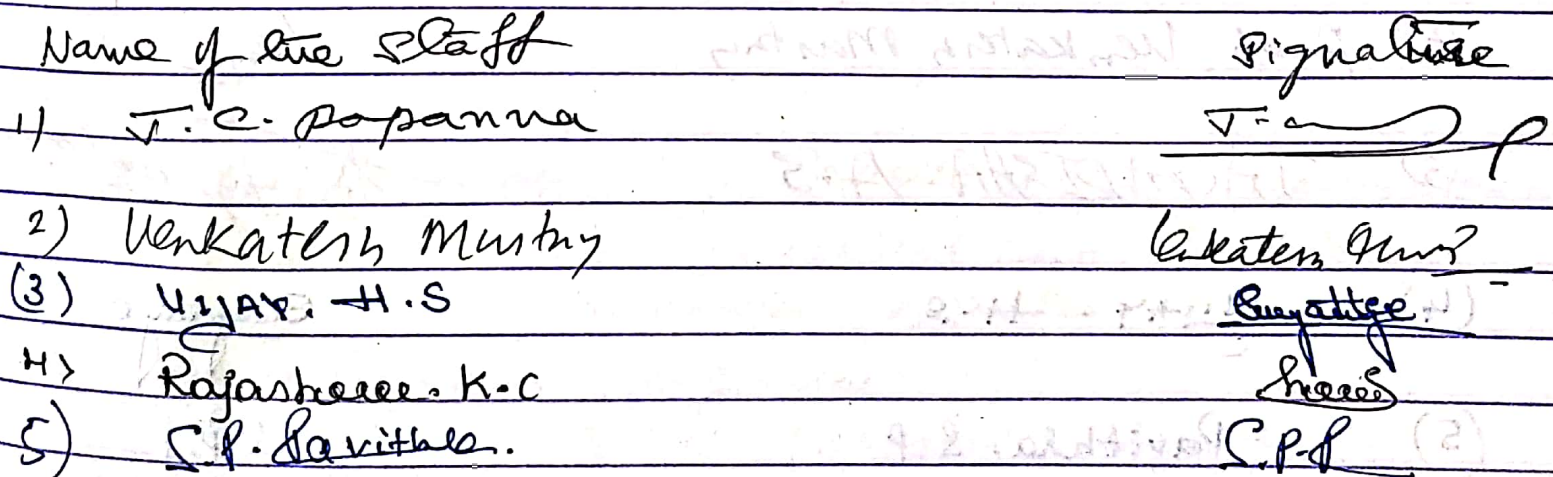 Name of the Staff Signature
1) J.C. Papanna
2) Venkatesh Mustry
(3) VIJAY. H.S
4) Rajashree. K.C
5) S.P. Pavithra. S.P.P